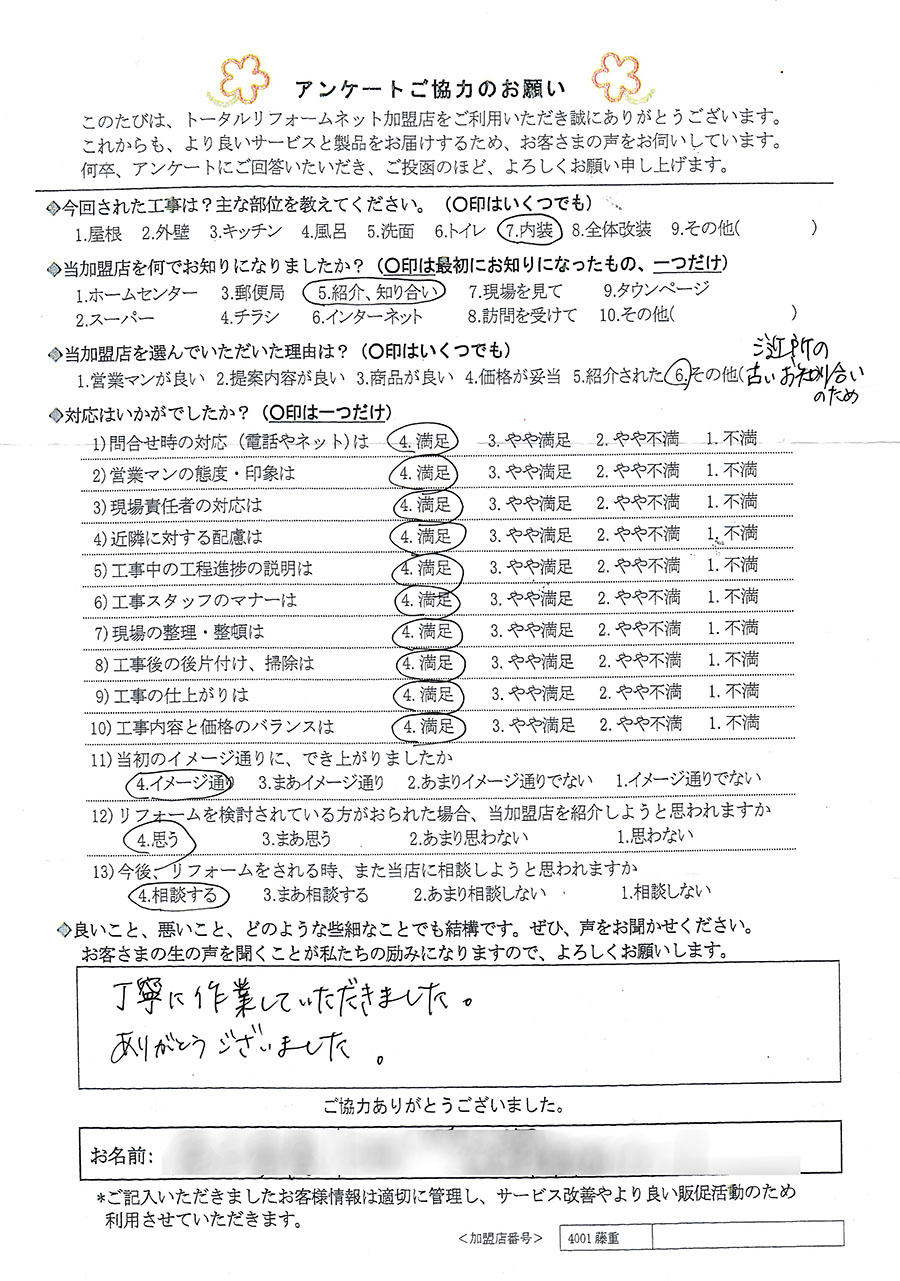 アンケートご協力のお願い
このたびは、トータルリフォームネット加盟店をご利用いただき誠にありがとうございます。
これからも、より良いサービスと製品をお届けするため、お客さまの声をお伺いしています。
何卒、アンケートにご回答いたいだき、ご投函のほど、よろしくお願い申し上げます。
◆今回された工事は？主な部位を教えてください。（〇印はいくつでも）
1.屋根 2.外壁 3.キッチン 4.風呂 5.洗面 6.トイレ 7.内装 8.全体改装 9.その他( )
◆当加盟店を何でお知りになりましたか？（〇印は最初にお知りになったもの、一つだけ）
1.ホームセンター 3.郵便局 5.紹介、知り合い 7.現場を見て 9.タウンページ
2.スーパー 4.チラシ 6.インターネット 8.訪問を受けて 10.その他( )
◆当加盟店を選んでいただいた理由は？（〇印はいくつでも）
1.営業マンが良い 2.提案内容が良い 3.商品が良い 4.価格が妥当 5.紹介された 6.その他(
ご近所の
古いお知り合い
のため
◆対応はいかがでしたか？（〇印は一つだけ）
1)問合せ時の対応（電話やネット）は 4.満足 3.やや満足 2.やや不満 1.不満
2)営業マンの態度・印象は 4.満足 3.やや満足 2.やや不満 1.不満
3)現場責任者の対応は 4.満足 3.やや満足 2.やや不満 1.不満
4)近隣に対する配慮は 4.満足 3.やや満足 2.やや不満 1.不満
5)工事中の工程進捗の説明は 4.満足 3.やや満足 2.やや不満 1.不満
6)工事スタッフのマナーは 4.満足 3.やや満足 2.やや不満 1.不満
7)現場の整理・整頓は 4.満足 3.やや満足 2.やや不満 1.不満
8)工事後の後片付け、掃除は 4.満足 3.やや満足 2.やや不満 1.不満
9)工事の仕上がりは 4.満足 3.やや満足 2.やや不満 1.不満
10)工事内容と価格のバランスは 4.満足 3.やや満足 2.やや不満 1.不満
11)当初のイメージ通りに、でき上がりましたか
4.イメージ通り 3.まあイメージ通り 2.あまりイメージ通りでない 1.イメージ通りでない
12)リフォームを検討されている方がおられた場合、当加盟店を紹介しようと思われますか
4.思う 3.まあ思う 2.あまり思わない 1.思わない
13)今後、リフォームをされる時、また当店に相談しようと思われますか
4.相談する 3.まあ相談する 2.あまり相談しない 1.相談しない
◆良いこと、悪いこと、どのような些細なことでも結構です。ぜひ、声をお聞かせください。
お客さまの生の声を聞くことが私たちの励みになりますので、よろしくお願いします。
丁寧に作業していただきました。
ありがとうございました。
ご協力ありがとうございました。
お名前:
*ご記入いただきましたお客様情報は適切に管理し、サービス改善やより良い販促活動のため
利用させていただきます。
＜加盟店番号＞ 4001 藤重